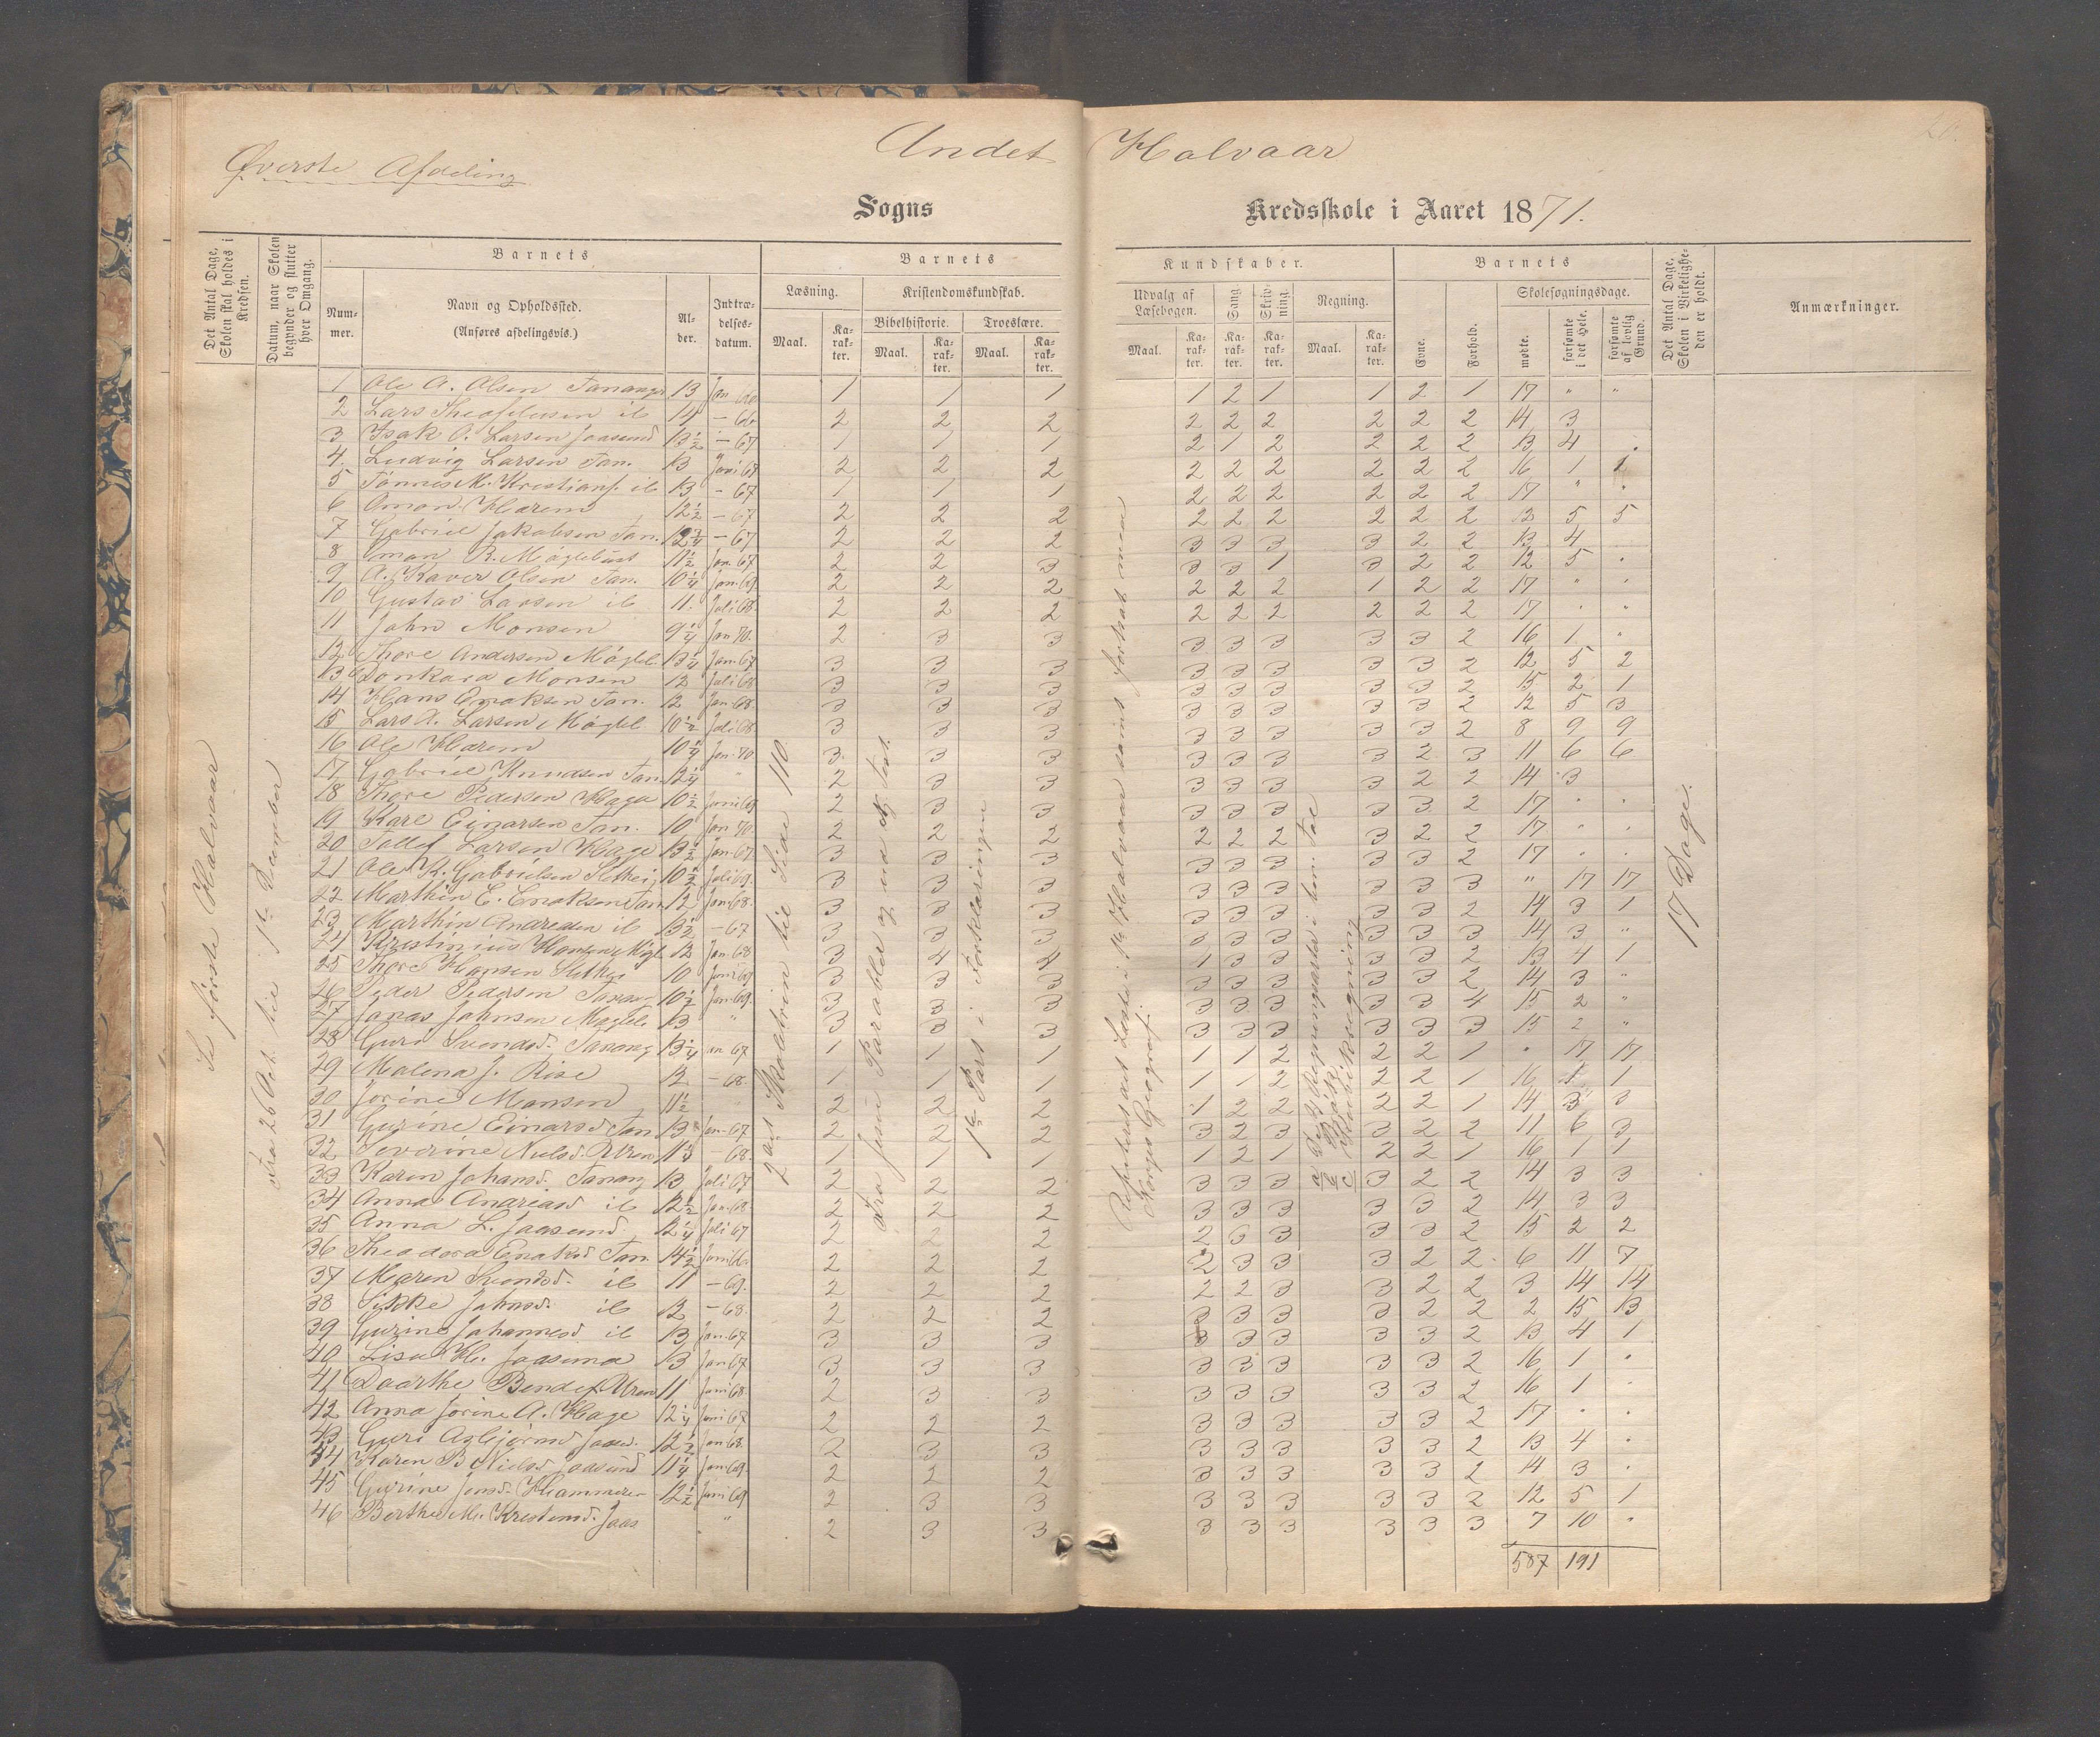 Andet Halvaar
Øverste Afdeling
Sogns Kredsskole i Aaret 1871.
Det Antal Dage, Skolen skal holdes i Kredsen.
Datum, naar Skolen begynder og slutter hver Omgang.
Barnets
Nummer.
Navn og Opholdssted.
(Anføres afdelingsvis.)
Alder.
Indtrædelsesdatum.
Barnets
Læsning.
Maal.
Karakter.
Kristendomskundskab.
Bibelhistorie.
Maal.
Karakter.
Troeslære.
Maal.
Karakter.
Kundskaber.
Udvalg af Læsebogen.
Maal.
Karakter.
Sang.
Karakter.
Skrivning.
Karakter.
Regning.
Maal.
Karakter.
Barnets
Evne.
Forhold.
Skolesøgningsdage.
mødte.
forsømte i det Hele.
forsømte af lovlig Grund.
Det Antal Dage, Skolen i Virkeligheden er holdt.
Anmærkninger.
Se første Halvaar
Fra 26 Oct. til 1ste December
2det Skoletrin til Side 110.
Fra Jesu Parabler og ud N. Test.
1ste Part i Forklaringen
Repeteret det Læste i 1ste Halvaar samt fortsat med
Norges Geografi.
17 Dage.
1 Ole A. Olsen Tananger 13 Jan 66 1 1 1 1 2 1 1 2 1 17 " "
2 Lars Theofelusen ib 14 – 66 2 2 2 2 2 2 2 2 2 14 3
3 Isak O. Larsen Jaasund 13½ – 67 1 1 1 2 1 2 2 2 2 13 4
4 Ludvig Larsen Tan. 13 Juni 67 2 2 2 2 2 2 2 2 2 16 1 1
5 Tønnes M. Kristians. ib 13 – 67 1 1 1 2 2 2 2 2 2 17 " "
6 Omon Harem 12½ – 67 2 2 2 2 2 2 2 2 2 12 5 5
7 Gabriel Jakobsen Tan. 12¾ – 67 2 2 2 3 3 3 3 2 2 13 4
8 Oman R. Møglebust 11½ Jan. 67 2 2 3 3 3 1 3 2 2 12 5 "
9 A. Xaver Olsen Tan. 10¼ Jan. 69 2 2 2 2 2 2 1 2 2 17 " "
10 Gustav Larsen ib 11 Juli 68 2 2 2 2 2 2 2 2 2 17 " "
11 John Monsen 9¼ Jan 70. 2 3 3 3 3 3 3 3 2 16 1 "
12 Thore Andersen Møgleb. 13¼ Jan. 67 3 3 3 3 3 3 3 3 2 12 5 2
13 Donkard Monsen 12 Juli 68 3 3 3 3 3 3 3 3 2 15 2 1
14 Hans Enoksen Tan. 12 Jan. 68 3 3 3 3 3 3 3 3 2 12 5 3
15 Lars A. Larsen Møgleb. 10½ Juli 68. 3 3 3 3 3 3 3 3 2 8 9 9
16 Ole Harem 10¼ Jan. 70 3 3 3 3 3 3 3 2 3 11 6 6
17 Gabriel Knudsen Tan. 12¼ " 2 3 3 3 3 3 3 2 2 14 3
18 Thore Pedersen Haga 10½ Juni 69 2 3 3 3 3 3 3 3 2 17 " "
19 Karl Einarsen Tan. 10 Jan 70. 2 2 2 2 2 2 3 2 2 17 " "
20 Tollef Larsen Hage 13½ Jan. 67 3 3 3 3 3 3 3 3 2 17 " "
21 Ole K. Gabrielsen 10½ Juli 69. 3 3 3 3 3 3 3 3 3 " 17 17
22 Marthin E. Enoksen Tan 12 Jan 68. 3 3 3 3 3 3 3 3 2 14 3 1
23 Marthin Andreden ib 13½ – 67 3 3 3 3 3 3 3 3 3 14 3 "
24 Kristinius Hansen Møgl. 12 Jan. 68 3 4 4 1 3 3 3 3 2 13 4 1
25 Thore Hansen 10 Juni 69 3 3 3 3 3 3 3 3 2 14 3 "
26 Peder Pedersen Tanang 10½ Jan. 69. 3 3 3 3 3 3 3 3 4 15 2 "
27 Jonas Johnsen Møgleb. 13 " 3 3 3 3 3 3 3 3 3 15 2 "
28 Guri Svendsd. Tanang 13¼ Jan 67 1 1 1 1 1 2 2 2 1 " 17 17
29 Malena J. Risa 12 – 68. 1 1 1 1 1 2 2 2 1 16 1 1
30 Jorine Monsen 11½ 2 2 2 1 2 2 2 2 1 14 3 3
31 Gurine Einarsd Tan. 13 Jan 67 2 2 2 3 2 3 3 2 2 11 6 3
32 Severine Nielsd. 11½ – 68. 1 1 1 1 2 1 2 2 1 16 1 1
33 Karen Johansd. Tanang 13 Juli 67 2 2 2 3 3 3 3 2 2 14 3 3
34 Anna Andreasd ib 12½ Jan. 68 2 2 2 3 3 3 3 3 2 14 3 3
35 Anna L. Jaasund 12¼ Juli 67 2 2 2 2 3 3 3 3 2 15 2 2
36 Theodora Enoksd Tan. 14½ Juni 66. 2 2 2 2 3 3 3 2 2 6 11 7
37 Maren Svendsd. ib 11 – 69. 2 2 2 2 2 3 3 2 2 3 14 14
38 Sikke Johnsd. ib 12 – 68. 2 2 2 3 3 3 3 2 2 2 15 13
39 Gurine Johannesd ib 13 Jan. 67 3 3 3 3 3 3 3 3 2 13 4 1
40 Lisa H. Jaasund 13 Jan 67 3 3 3 3 3 3 3 3 2 16 1 "
41 Daarthe Bendes. 11 Juni 68 2 3 3 3 3 3 3 3 2 16 1 "
42 Anna Jorine A. Hage 12¼ Juni 67 2 2 2 3 3 3 3 3 2 17 " "
43 Guri Asbjørnsd Jaas. 12½ Jan 68. 2 3 3 3 3 3 3 3 2 13 4 "
44 Karen B Nielsd Jaasund 11¼ Jan. 69. 2 2 2 3 3 3 3 3 2 14 3 "
45 Gurine Jonsd. Hammeren 12½ Juni 69 2 3 3 3 3 3 3 3 2 12 5 1
46 Berthe M. Kristensd. Jaas " 2 3 3 3 3 3 3 3 3 7 10 "
587 191